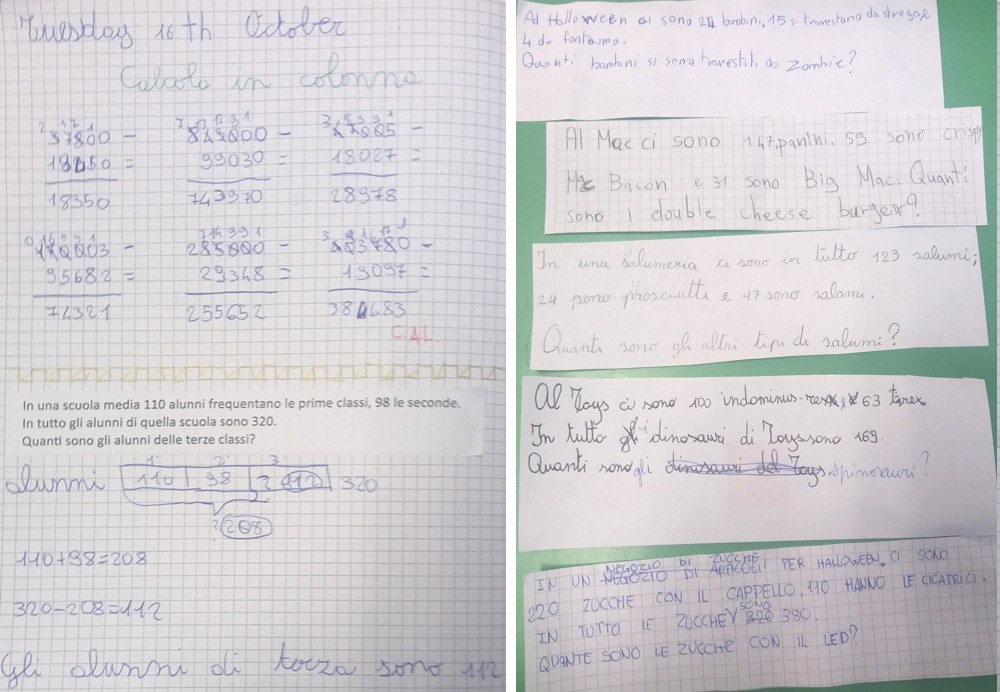 Tuesday 16 th October
Calcolo in colonna
37800 - 843000 - 47005 -
19450 = 99030 = 18027 =
18350 743970 28978
170003 - 285000 - 403780 -
95682 = 29348 = 19097 =
74321 255652 384683
C.A.L.
In una scuola media 110 alunni frequentano le prime classi, 98 le seconde.
In tutto gli alunni di quella scuola sono 320.
Quanti sono gli alunni delle terze classi?
1 2 3
alunni 110 98 ? 112 320
? 208
110+98=208
320-208=112
Gli alunni di terza sono 112
Ad Halloween ci sono 24 bambini, 15 si travestono da strega e
4 da fantasma.
Quanti bambini si sono travestiti da Zombie?
Al Mac ci sono 147 panini. 59 sono crispy
Mc Bacon e 31 sono Big Mac. Quanti
sono i double cheese burger?
In una salumeria ci sono in tutto 123 salumi;
24 sono prosciutti e 47 sono salami.
Quanti sono gli altri tipi di salumi?
Al Toys ci sono 100 indominus-rex e 63 t-rex
In tutto i dinosauri di Toys sono 169.
Quanti sono gli dinosauri del Toys spinosauri?
IN UN NEGOZIO DI ZUCCHE
NEGOZIO DI ARTICOLI PER HALLOWEEN, CI SONO
220 ZUCCHE CON IL CAPPELLO, 110 HANNO LE CICATRICI.
IN TUTTO LE ZUCCHE SONO 320 380.
QUANTE SONO LE ZUCCHE CON IL LED?